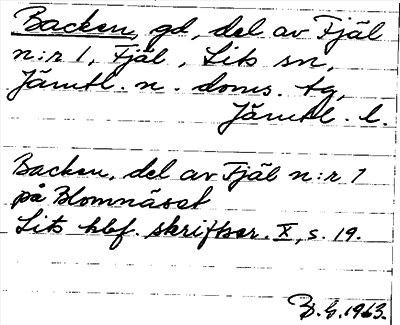 Backen, gd, del av Fjäl
n:r 1, Fjäl, Lits sn,
Jämtl. n. doms. tg,
Jämtl. l.
Backen, del av Fjäl n:r 1
på Blomnäset
Lits hbf. skriftser. X, s. 19.
B.G. 1963.